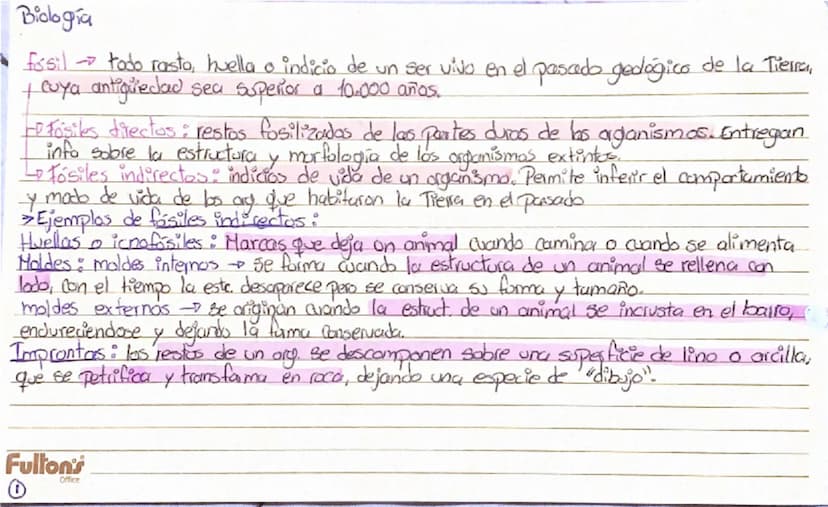 Biología
fósil → todo rasto, huella o indicio de un ser vivo en el pasado geológico de la Tierra,
cuya antigüedad sea superior a 10.000 años.
→ Fósiles directos: restos fosilizados de las partes duras de los organismos. Entregan
info sobre la estructura y morfología de los organismos extintos.
→ Fósiles indirectos: indicios de vida de un organismo. Permite inferir el comportamiento
y modo de vida de los org. que habitaron la Tierra en el pasado
> Ejemplos de fósiles indirectos:
Huellas o icnofósiles: Marcas que deja un animal cuando camina o cuando se alimenta
Moldes: moldes internos → se forma cuando la estructura de un animal se rellena con
lodo, con el tiempo la estr. desaparece pero se conserva su forma y tamaño.
moldes externos → se originan cuando la estruct. de un animal se incrusta en el barro,
endureciendose y dejando la forma conservada.
Improntas: los restos de un org. se descomponen sobre una superficie de limo o arcilla,
que se petrifica y transforma en roca, dejando una especie de "dibujo".
Fulton's
Office
1